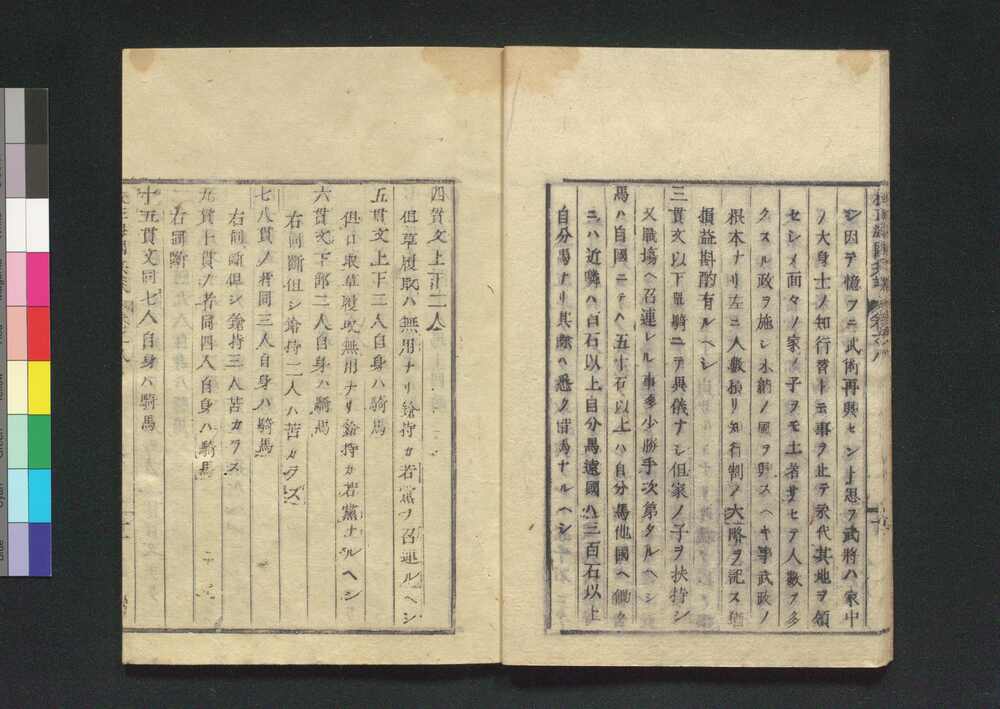 シ因テ憶フニ武術再興セント思フ武將ハ家中
ノ大身士ノ知行皆トモ事ヲ止テ永代其地ヲ領
セシメ面々ノ家ノ子ヲモ土着サセテ人數ヲ多
クスル政ヲ施シ水納ノ風ヲ興スヘキ事武政ノ
根本ナリ左ニ人數積リ知行割ノ大略ヲ記ス猶
損益斟酌有ルヘシ
三貫文以下單騎ニテ異儀ナシ但家ノ子ヲ扶持シ
又戰塲ヘ召連レル事多少勝手次第タルヘシ
馬ハ自國ニテハ五十石以上ハ自分馬他國ヘ
ニハ近隣ハ百石以上自分馬遠國ハ三百石以上
自分馬ナリ其餘ハ悉ク借馬ナルヘシ
四貫文上下二人
但草履取ハ無用ナリ鎗持カ若黨ヲ召連ルヘシ
五貫文上下三人自身ハ騎馬
但口取草履取無用ナリ鎗持カ若黨タルヘシ
六貫文下部二人自身ハ騎馬
右同斷但シ鎗持二人ハ苦カラズ
七八貫ノ者同三人自身ハ騎馬
右同斷但シ鎗持三人苦カラス
九貫十貫ノ者同四人自身ハ騎馬
右同斷
十五貫文同七人自身ハ騎馬